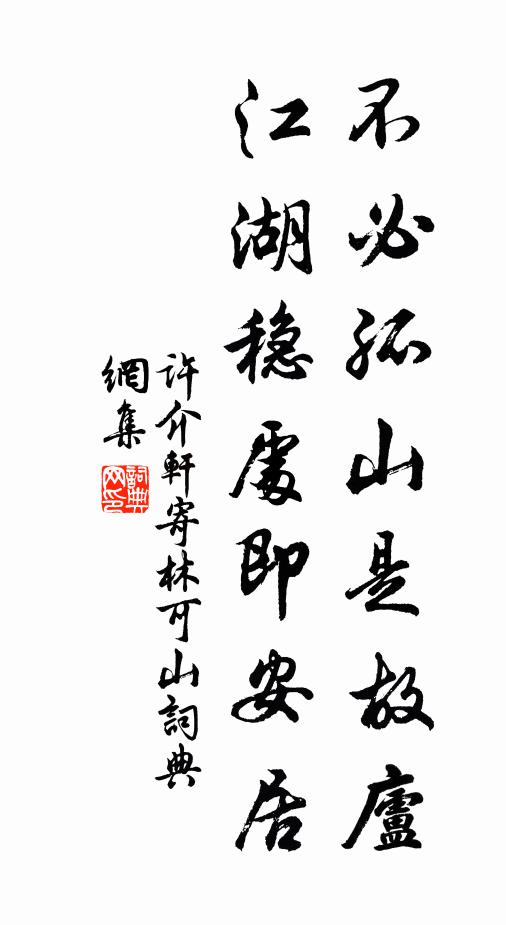 不必孤山是故廬
江湖穏處即安居
許介軒寄林可山詞典
網集
詞典網印